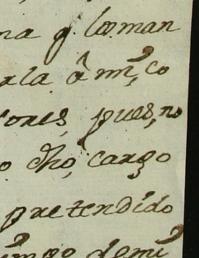 na q. lo man
rla â mi, co
tores, pues, no
o dho, cargo
pretendido